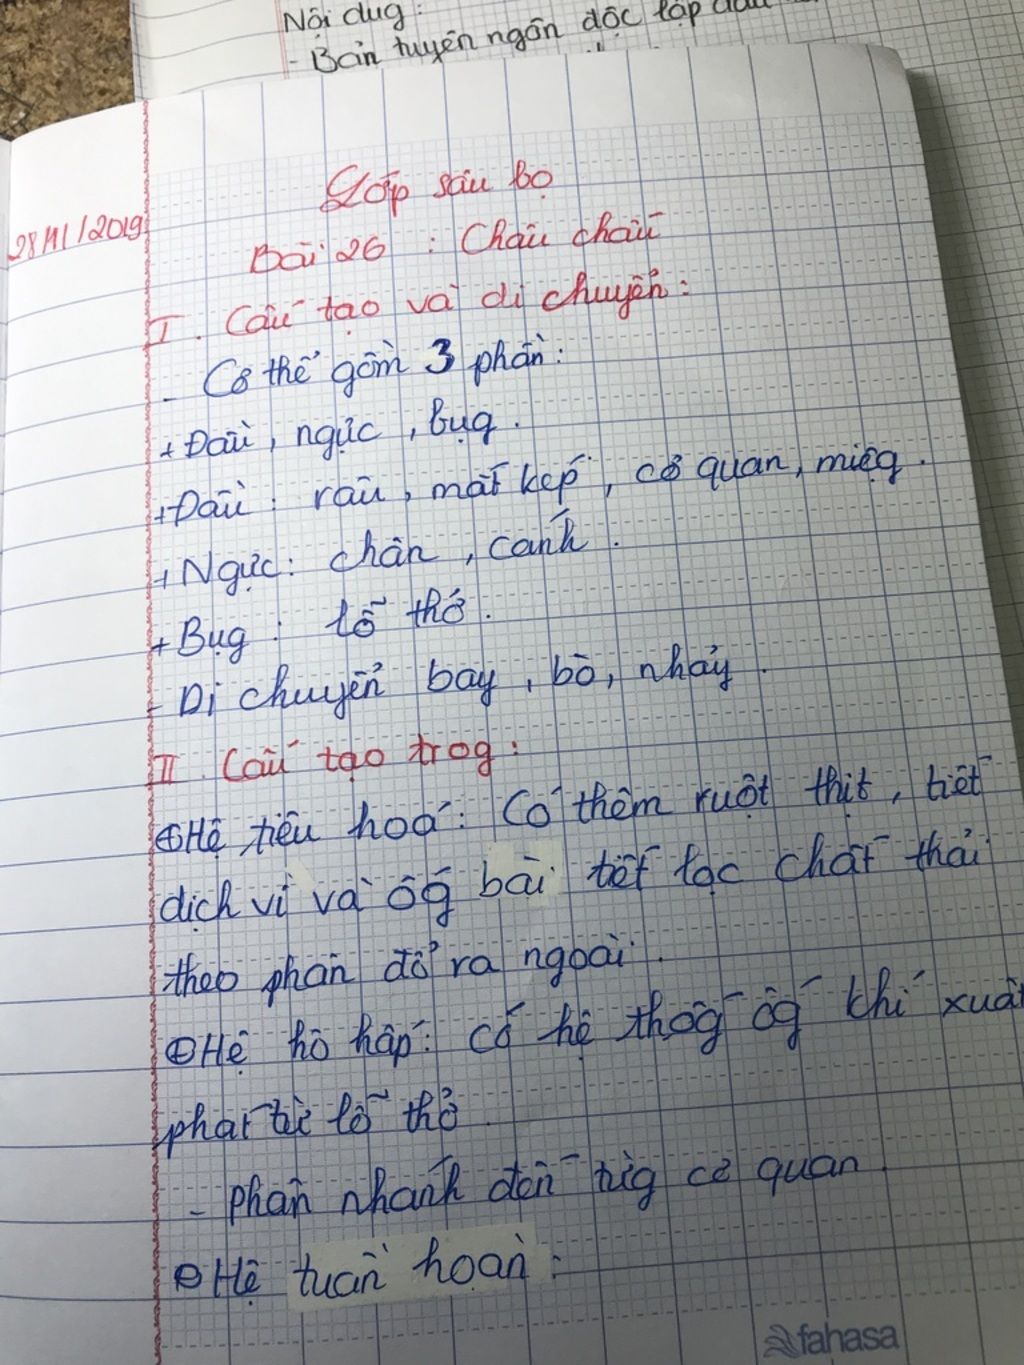 Nội dug:
- Bản tuyên ngôn độc lập đầu
28/11/2019
Lớp sâu bọ
Bài 26 : Châu chấu
I. Cấu tạo và di chuyển:
- Cơ thể gồm 3 phần:
+ Đầu, ngực, bụg.
+ Đầu: râu, mắt kép, cơ quan, miệg.
+ Ngực: chân, cánh.
+ Bụg : lỗ thở.
- Di chuyển bay, bò, nhảy.
II. Cấu tạo trog:
⊕ Hệ tiêu hoá: Có thêm ruột thịt, tiết
dịch vị và ốg bài tiết lọc chất thải
theo phân đổ ra ngoài.
⊕ Hệ hô hấp: có hệ thốg ốg khí xuất
phát từ lỗ thở
- phân nhánh đến từg cơ quan.
⊕ Hệ tuần hoàn:
fahasa